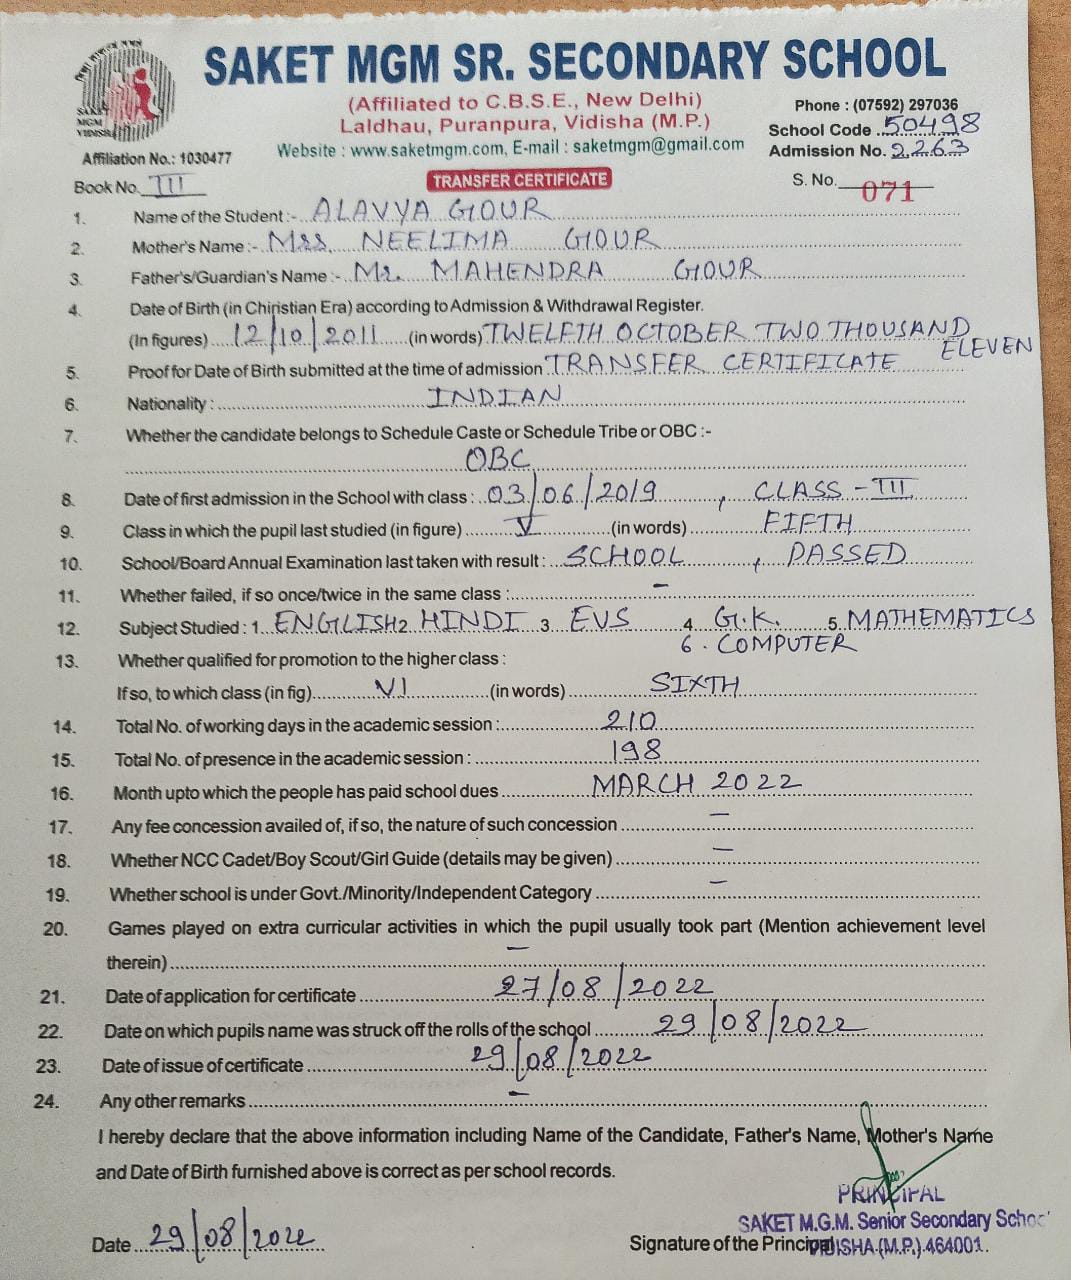 SAKET MGM SR. SECONDARY SCHOOL
(Affiliated to C.B.S.E., New Delhi)
Laldhau, Puranpura, Vidisha (M.P.)
Website : www.saketmgm.com, E-mail : saketmgm@gmail.com
SAKET
MGM
VIDISHA
Affiliation No.: 1030477
Phone : (07592) 297036
School Code 50498
Admission No. 2263
Book No. III
TRANSFER CERTIFICATE
S. No. 071
1. Name of the Student :- ALAVYA GOUR
2. Mother's Name :- Mrs. NEELIMA GOUR
3. Father's/Guardian's Name :- Mr. MAHENDRA GOUR
4. Date of Birth (in Chiristian Era) according to Admission & Withdrawal Register.
(In figures) 12/10/2011 (in words) TWELFTH OCTOBER TWO THOUSAND
ELEVEN
5. Proof for Date of Birth submitted at the time of admission TRANSFER CERTIFICATE
6. Nationality : INDIAN
7. Whether the candidate belongs to Schedule Caste or Schedule Tribe or OBC :-
OBC
8. Date of first admission in the School with class : 03/06/2019, CLASS - III
9. Class in which the pupil last studied (in figure) V (in words) FIFTH
10. School/Board Annual Examination last taken with result : SCHOOL, PASSED
11. Whether failed, if so once/twice in the same class : -
12. Subject Studied : 1. ENGLISH 2 HINDI 3 EVS 4. G.K. 5. MATHEMATICS
6. COMPUTER
13. Whether qualified for promotion to the higher class :
If so, to which class (in fig) VI (in words) SIXTH
14. Total No. of working days in the academic session : 210
15. Total No. of presence in the academic session : 198
16. Month upto which the people has paid school dues MARCH 2022
17. Any fee concession availed of, if so, the nature of such concession -
18. Whether NCC Cadet/Boy Scout/Girl Guide (details may be given) -
19. Whether school is under Govt./Minority/Independent Category -
20. Games played on extra curricular activities in which the pupil usually took part (Mention achievement level
therein) -
21. Date of application for certificate 27/08/2022
22. Date on which pupils name was struck off the rolls of the school 29/08/2022
23. Date of issue of certificate 29/08/2022
24. Any other remarks -
I hereby declare that the above information including Name of the Candidate, Father's Name, Mother's Name
and Date of Birth furnished above is correct as per school records.
PRINCIPAL
SAKET M.G.M. Senior Secondary School
Date 29/08/2022
Signature of the Principal VIDISHA (M.P.) 464001.